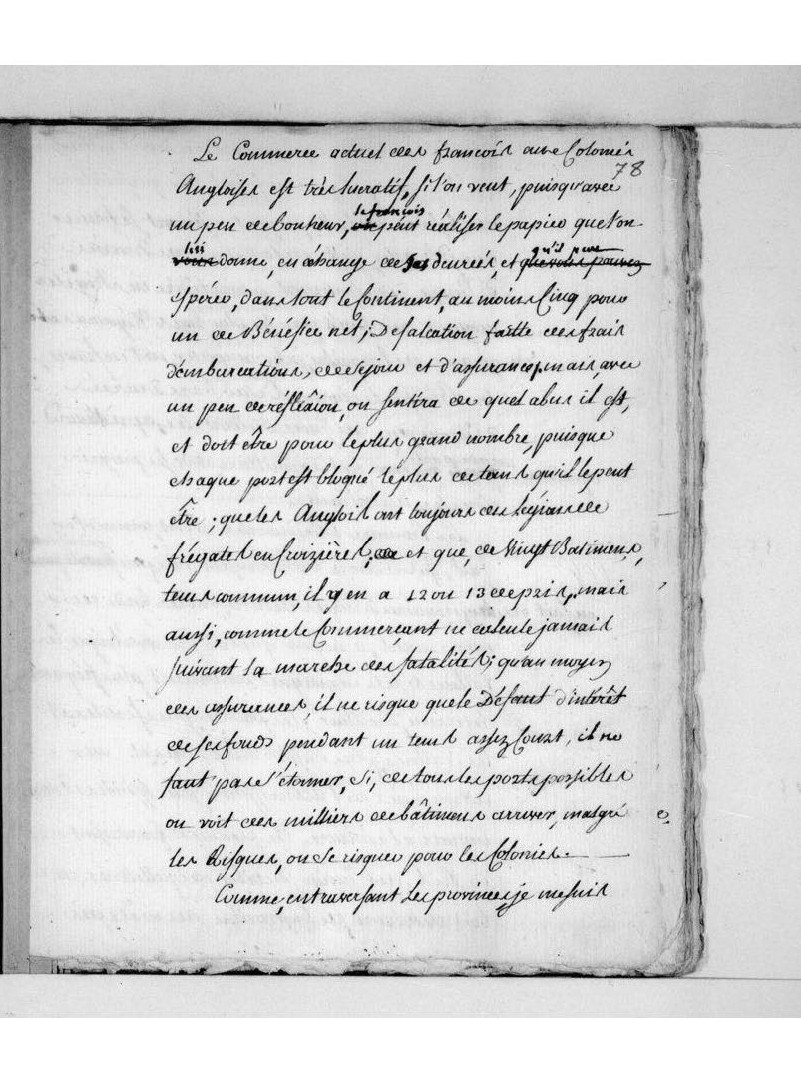 Le Commerce actuel des francois aux Colonies
78
Angloises est très lucratif, si l'on veut, puisqu'avec
le françois
un peu de bonheur, peut réaliser le papier que l'on
lui qu'il peut
vous donne, en échange de ses denrées, et que vous pouvez
espérer, dans tout le Continent, au moins Cinq pour
un de Bénéfice net; Défalcation faitte des frais
d'embarcations, de séjour et d'assurance, mais, avec
un peu de réfléxion, on sentira de quel abus il est,
et doit être pour le plus grand nombre, puisque
chaque port est bloqué le plus de tems qu'il le peut
être; que les Anglois ont toujours des légions de
frégates en Croizières, et que, de Vingt Batimens,
tems commun, il y en a 12 ou 13 de pris, mais
aussi, comme le Commerçant ne calcule jamais
suivant la marche des fatalités; qu'au moyen
des assurances, il ne risque que le Défaut d'intérêt
de ses fonds pendant un tems assez Court, il ne
faut pas s'étonner, si, de tous les ports possibles
on voit des milliers de bâtimens arriver, malgré
les Risques, ou se risquer pour les Colonies.
Comme, en traversant les provinces, je me suis